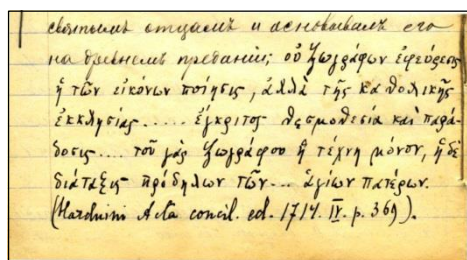 святымъ отцамъ и основывалъ его
на древнемъ преданіи; οὐ ζωγράφων ἐφεύρεσις
ἡ τῶν εἰκόνων ποίησις, ἀλλὰ τῆς καθολικῆς
ἐκκλησίας ..... ἔγκριτος θεσμοθεσία καὶ παρά-
δοσις .... τοῦ γὰρ ζωγράφου ἡ τέχνη μόνον, ἡ δὲ
διάταξις πρόδηλων τῶν ... ἁγίων πατέρων.
(Harduini Acta concil. ed. 1714. IV. p. 369).